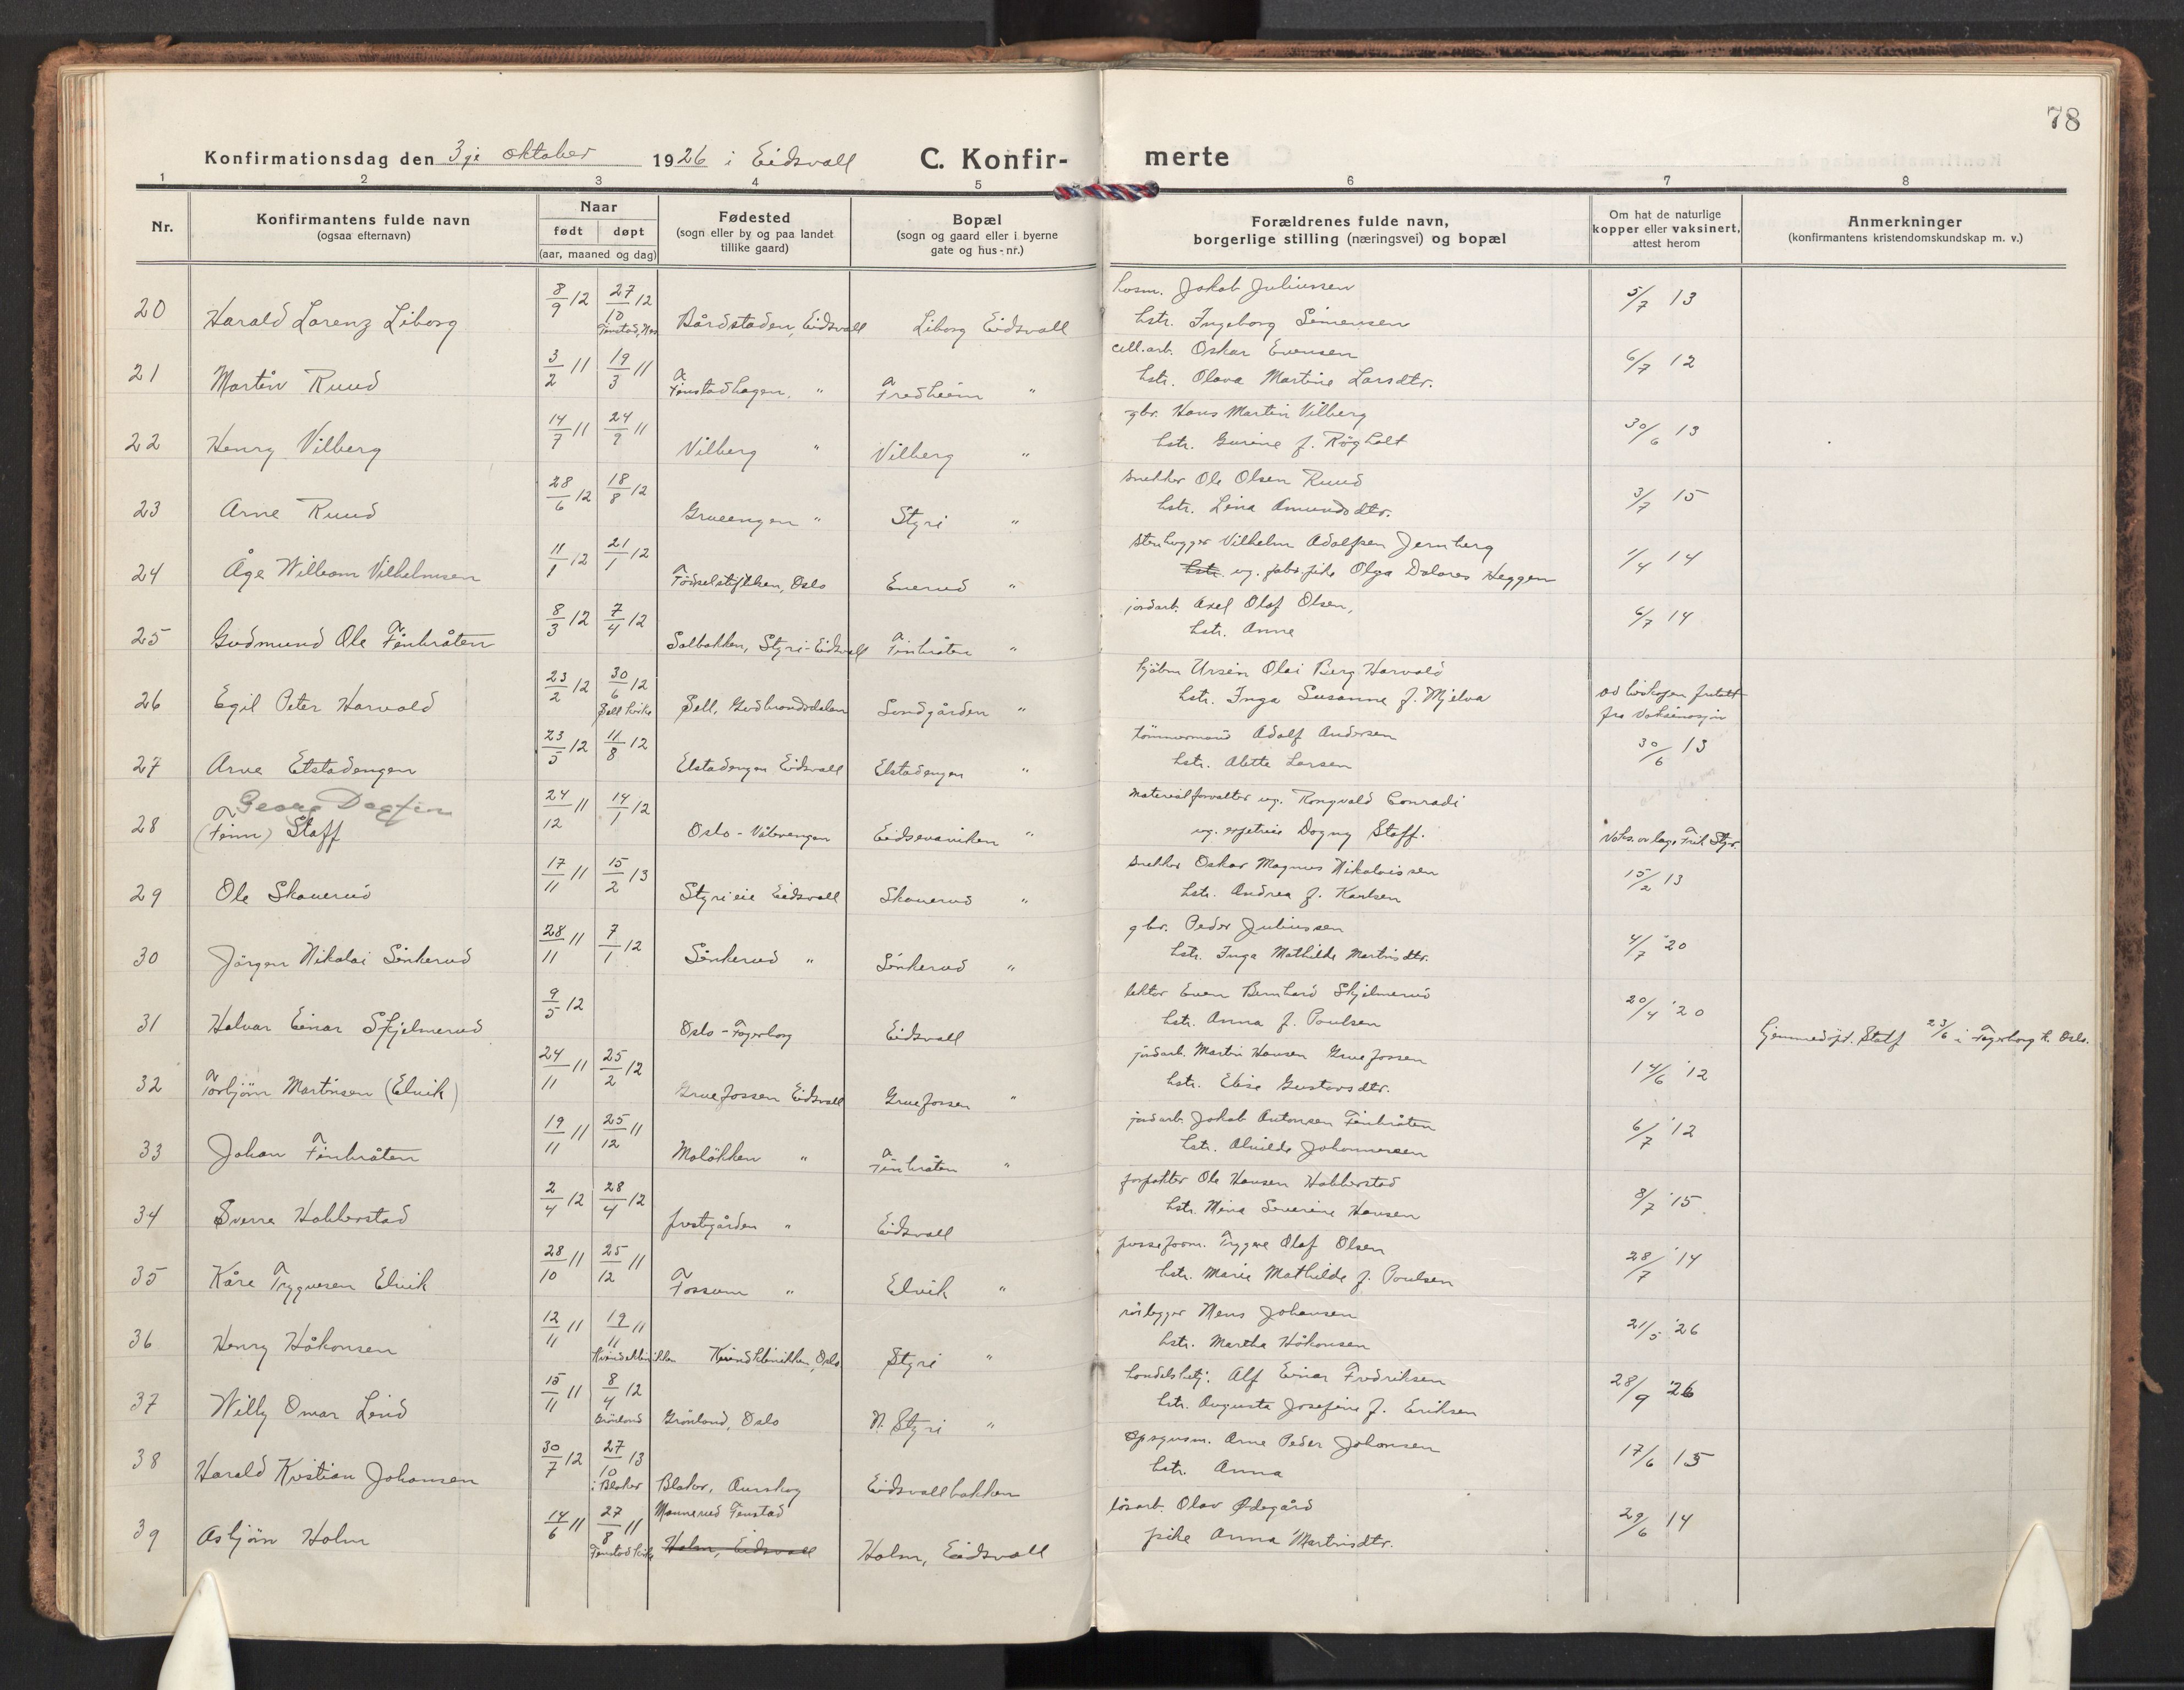 78
Konfirmationsdag den 3je oktober 1926 i Eidsvall C. Konfir- merte
1 2 3 4 5 6 7 8
Nr.
Konfirmantens fulde navn
(ogsaa efternavn)
Naar
født døpt
(aar, maaned og dag)
Fødested
(sogn eller by og paa landet
tillike gaard)
Bopæl
(sogn og gaard eller i byerne
gate og hus-nr.)
Forældrenes fulde navn,
borgerlige stilling (næringsvei) og bopæl
Om hat de naturlige
kopper eller vaksinert,
attest herom
Anmerkninger
(konfirmantens kristendomskundskap m. v.)
20 Harald Lorenz Liborg 8/9 12 27/10 12 Fenstad, Nes Bårdstaden, Eidsvall Liborg Eidsvall
husm. Jakob Juliussen 5/7 13
hstr. Ingeborg Simensen
21 Martin Ruud 3/2 11 19/3 11 Finstadhagen, " Fredheim "
cell.arb. Oskar Evensen 6/7 12
hstr. Olava Martine Larsdtr.
22 Henry Vilberg 14/7 11 24/9 11 Vilberg " Vilberg "
gbr. Hans Martin Vilberg 30/6 13
hstr. Gurine f. Rögholt
23 Arne Ruud 28/6 12 18/8 12 Grueengen " Styri "
snekker Ole Olsen Ruud 3/7 15
hstr. Lina Amundsdtr.
24 Åge William Vilhelmsen 11/1 12 21/1 12 Födselstiftelsen, Oslo Enerud "
stenhugger Vilhelm Adolfsen Jernberg 1/4 14
hstr. ug. fabr.pike Olga Dolores Heggen
25 Gudmund Ole Finbråten 8/3 12 7/4 12 Solbakken, Styri-Eidsvall Finbråten "
jordarb. Axel Olaf Olsen, 6/7 14
hstr. Anne
26 Egil Peter Harvold 23/2 12 30/6 12 Sell kirke Sell, Gudbrandsdalen Sundgården "
kjöbm Ursin Olai Berg Harvold
hstr. Inga Susanne f. Mjelva
fra Vaksinasjon
27 Arne Elstadengen 23/5 12 11/8 12 Elstadengen Eidsvall Elstadengen "
tömmermand Adolf Andersen 30/6 13
hstr. Alette Larsen
Georg Dagfin
28 (Finn) Staff 24/12 11 14/1 12 Oslo - Vålerengen Eidsvaviken "
Materialforvalter ug. Rongvald Conradi
ug. Dagny Staff.
29 Ole Skauerud 17/11 11 15/2 13 Styrieie Eidsvall Skauerud "
snekker Oskar Magnus Nikolaissen 15/2 13
hstr. Andrea f. Karlsen
30 Jörgen Nikolai Sönkerud 28/11 11 7/1 12 Sönkerud " Sönkerud "
gbr. Peder Juliussen 4/7 '20
hstr. Inga Mathilde Martinsdtr.
31 Halvar Einar Skjelmerud 9/5 12 Oslo - Fagerborg Eidsvall
lektor Even Bernhard Skjelmerud 20/4 '20
hstr. Anna f. Poulsen
hjemmedöpt. Stadf 23/6 i Fagerborg k. Oslo.
32 Torbjörn Martinsen (Elvik) 24/11 11 25/2 12 Gruefossen Eidsvall Gruefossen "
jordarb. Martin Hansen Gruefossen 14/6 '12
hstr. Elise Gustavsdtr.
33 Johan Finbråten 19/11 11 25/12 11 Molökken " Finbråten "
jordarb. Jakob Antonsen Finbråten 6/7 '12
hstr. Alvilde Johannessen
34 Sverre Habberstad 2/4 12 28/4 12 prestgården " Eidsvall
forpakter Ole Hansen Habberstad 8/7 '15
hstr. Mina Severine Hansen
35 Kåre Trygvesen Elvik 28/10 11 25/12 11 Fossum " Elvik "
pusseform. Trygve Olaf Olsen 28/7 '14
hstr. Marie Mathilde f. Poulsen
36 Henry Håkonsen 12/11 11 19/11 11 Kvindeklinikken Kvindeklinikken, Oslo Styri "
rörlegger Mens Johansen 21/5 '26
hstr. Martha Håkonsen
37 Willy Omar Lind 15/11 11 8/4 12 Grönland Grönland, Oslo N. Styri "
handelsbetj. Alf Einar Fredriksen 28/9 '26
hstr. Augusta Josefine f. Eriksen
38 Harald Kristian Johansen 30/7 12 27/10 13 i Blaker Blaker, Aurskog Eidsvallbakken
opsynsm. Arne Peder Johansen 17/6 15
hstr. Anna
39 Asbjörn Holm 14/6 11 27/8 11 Fenstad kirke Mannerud Fenstad
Holm, Eidsvall Holm, Eidsvall
lösarb. Olav Ødegård 29/6 14
pike Anna Martinsdtr.